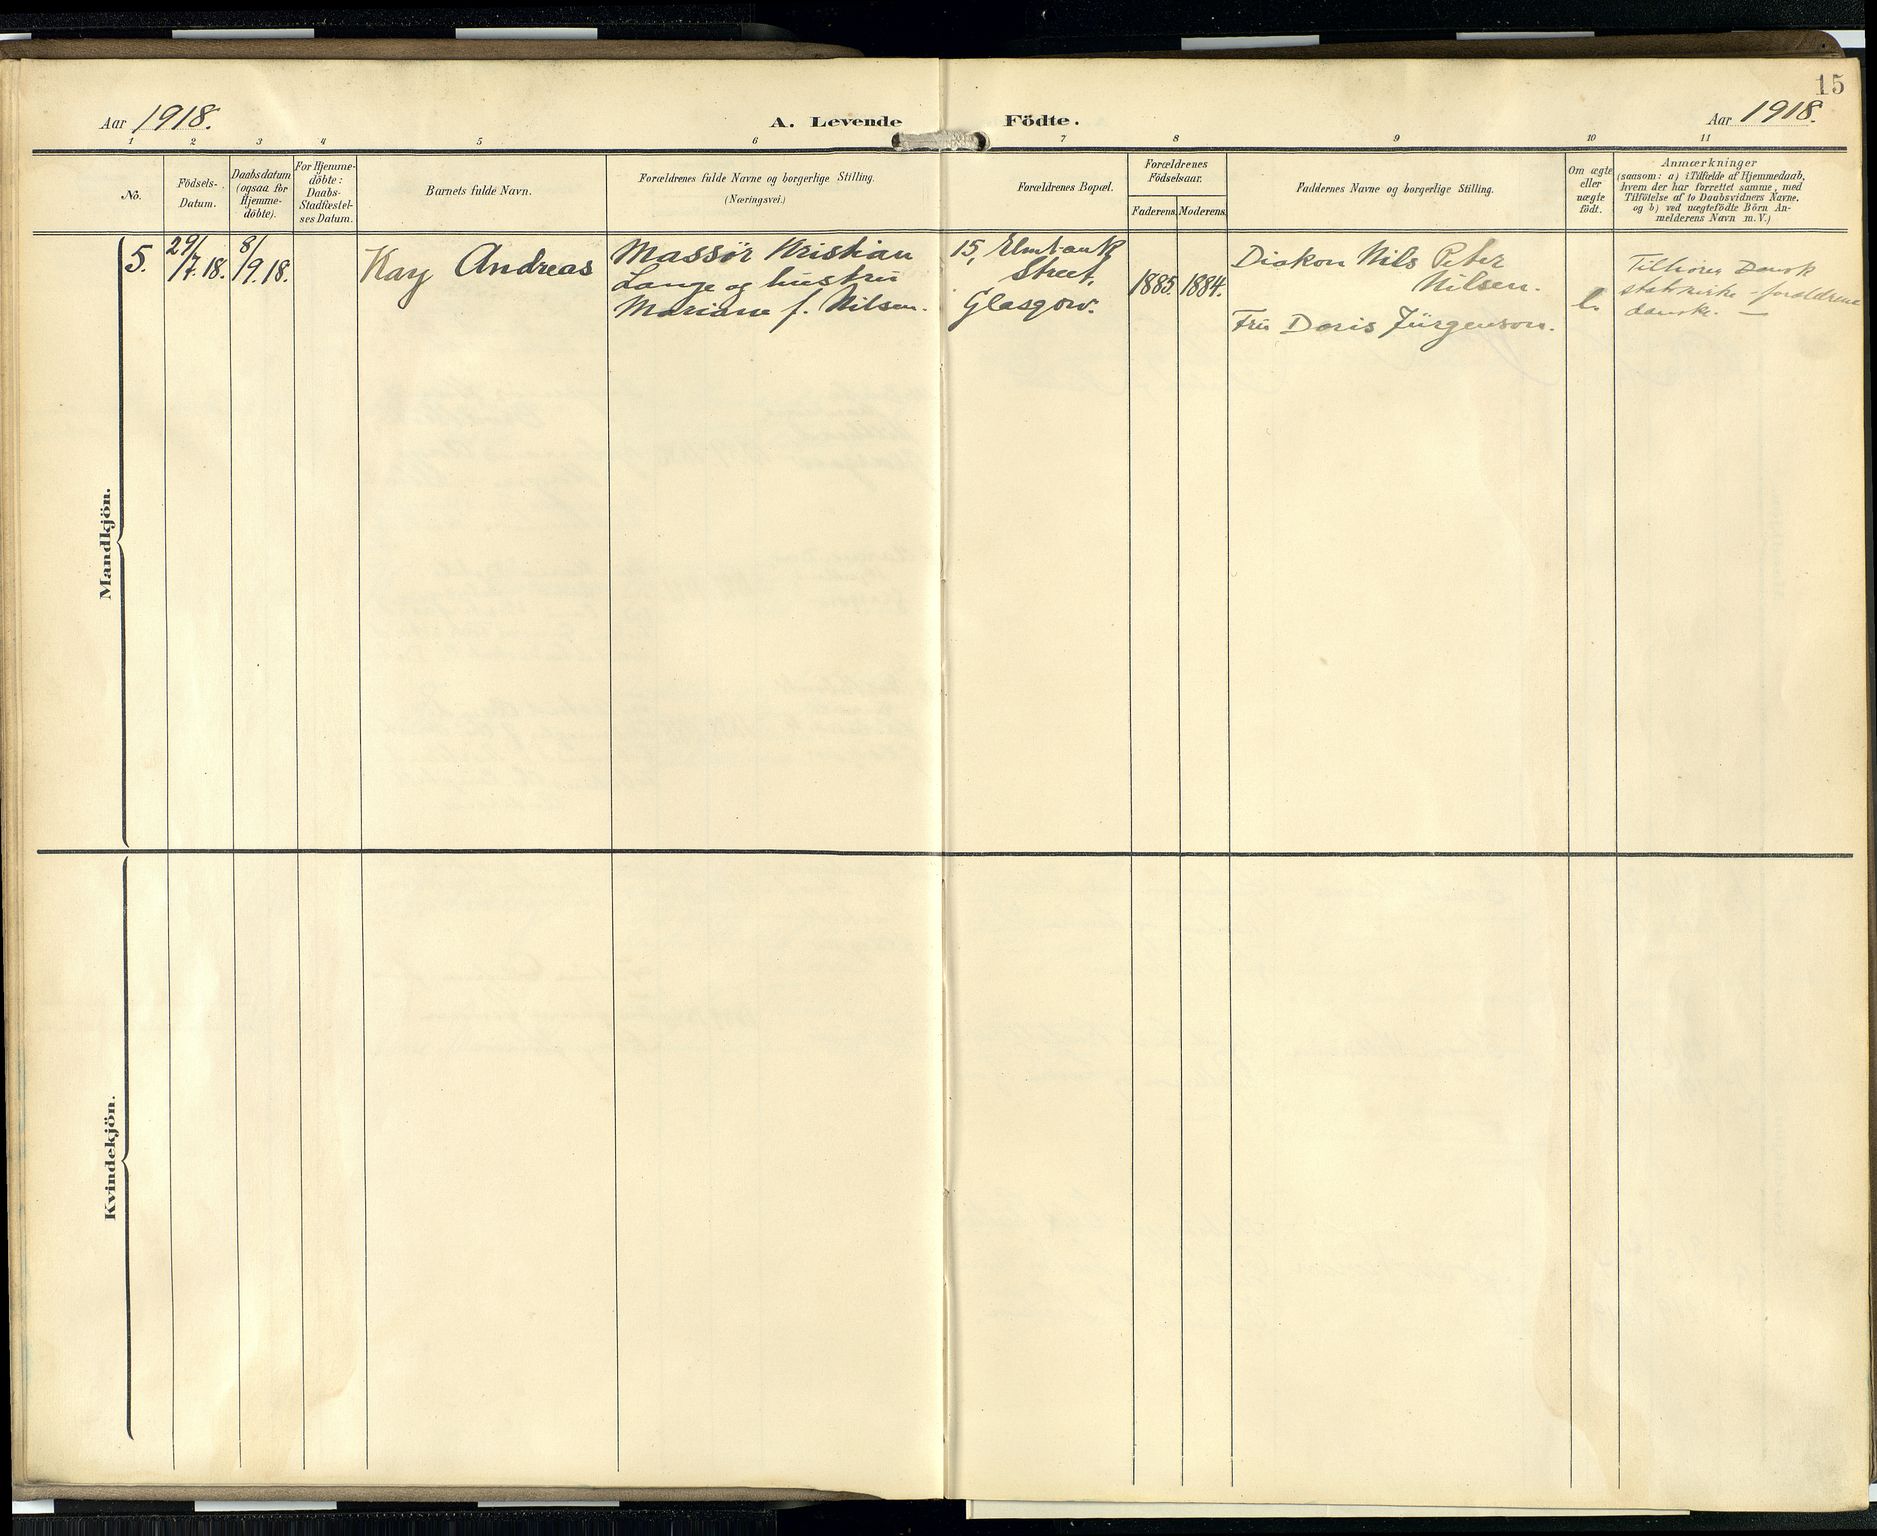 15
Aar 1918.
A. Levende Födte.
Aar 1918.
1 2 3 4 5 6 7 8 9 10 11
No.
Födsels-
Datum.
Daabsdatum
(ogsaa for
Hjemme-
döbte).
For Hjemme-
döbte:
Daabs-
Stadfæstel-
ses Datum.
Barnets fulde Navn.
Forældrenes fulde Navne og borgerlige Stilling.
(Næringsvei.)
Forældrenes Bopæl.
Forældrenes
Födselsaar.
Faderens. Moderens.
Faddernes Navne og borgerlige Stilling.
Om ægte
eller
uægte
født.
Anmærkninger
(saasom: a) i Tilfælde af Hjemmedaab,
hvem der har forrettet samme, med
Tilföielse af to Daabsvidners Navne,
og b) ved uægtefödte Börn An-
melderens Navn m. V.)
Mandkjön.
5.
29/
/7.18.
8/
/9.18.
Kay Andreas
Massör Kristian
Lange og hustru
Mariane f. Nilsen.
15, Elmbank
Street,
Glasgow.
1885. 1884.
Diakon Nils Peter
Nilsen.
Fru Doris Jürgenson.
Tilhörer Dansk
statskirke - foreldrene
danske. —
Kvindekjön.